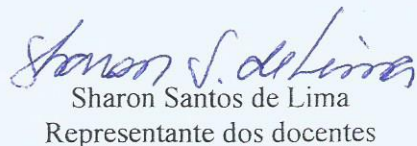 Sharon S. de Lima
Sharon Santos de Lima
Representante dos docentes